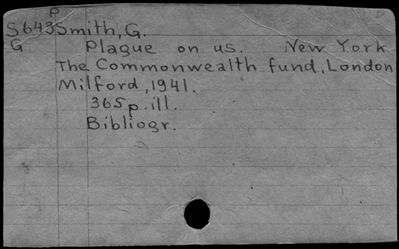 P
S643 Smith, G.
G Plague on us. New York
The Commonwealth fund, London
Milford, 1941.
365p. ill.
Bibliogr.